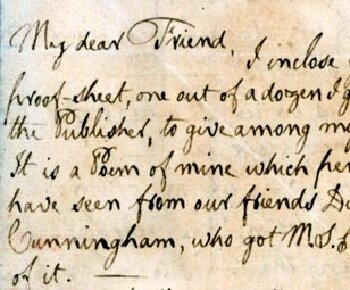 My dear Friend,
I inclose
proof-sheet, one out of a dozen I g
the Publisher, to give among my
It is a Poem of mine which per
have seen from our friends D
Cunningham, who got M.S.
of it.